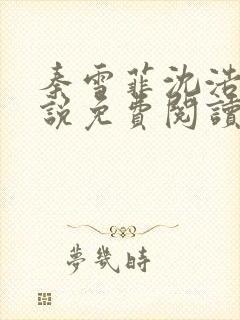 秦雪菲沈浩
說免費閱讀
夢幾時